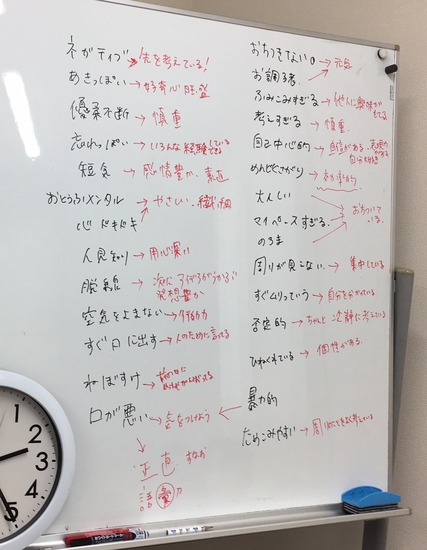 ネガティブ → 先を考えている!
あきっぽい → 好奇心旺盛
優柔不断 → 慎重
忘れっぽい → いろんな経験できる
短気 → 感情豊か、素直
おとうふメンタル → やさしい、繊細
心ドキドキ
人見知り → 用心深い
脱線 → 次にアイデアがうかぶ
発想豊か
空気をよまない → 行動力
すぐ口に出す → 人のために言ってる
ねぼすけ → 前の日に
口が悪い → 気をつけよう ←
正直 すなお
語彙力
おちつきない → 元気
お調子者
ふみこみすぎる → 他人に興味が
もてる
考えすぎる → 慎重
自己中心的 → 自信がある、表現
めんどくさがり → 効率的
大人しい
マイペースすぎる → おちついて
いる
のろま
周りが見えない → 集中している
すぐムリっていう → 自分を分かっている
否定的 → ちゃんと冷静に考えている
ひねくれている → 個性がある
暴力的
ためこみやすい → 周りのことをよく考えている
2
3
4
5